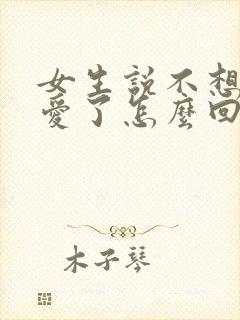 女生説不想
愛了怎麼回
木子琴